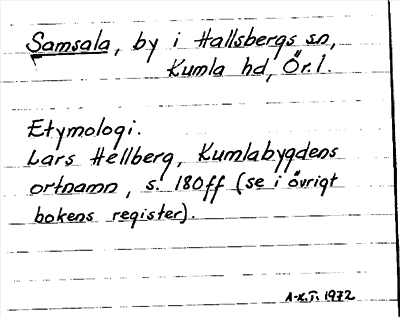 Samsala, by i Hallsbergs sn,
Kumla hd, Ör. l.
Etymologi.
Lars Hellberg, Kumlabygdens
ortnamn, s. 180ff (se i övrigt
bokens register).
A-K.T. 1972